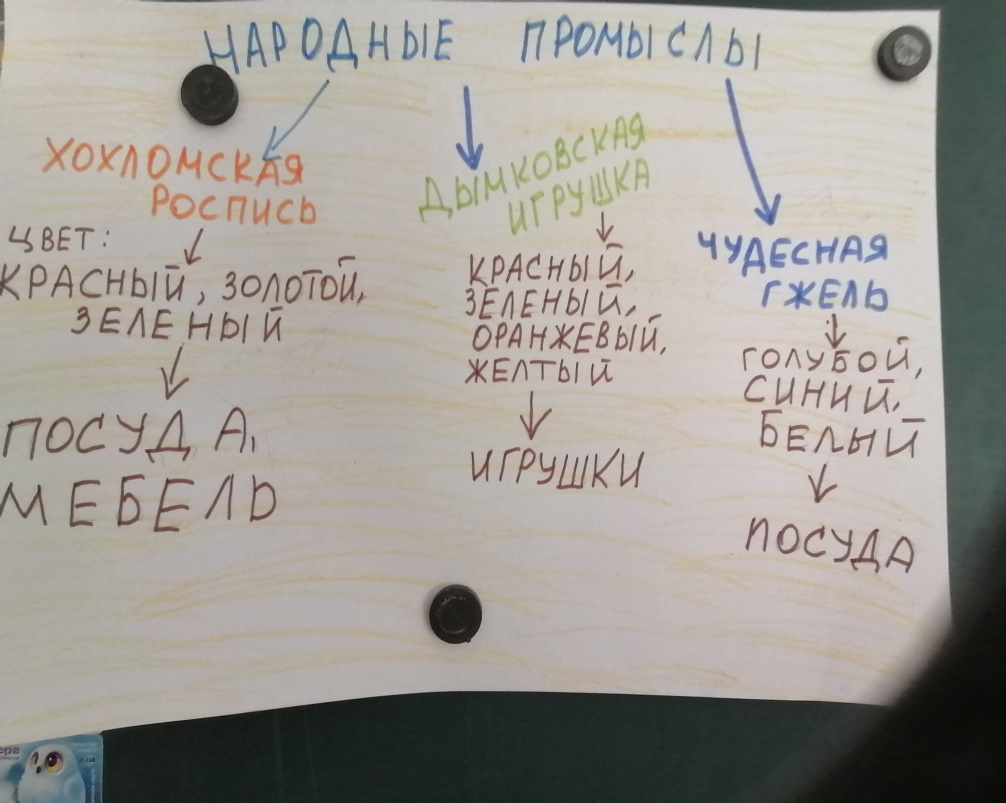 НАРОДНЫЕ ПРОМЫСЛЫ
ХОХЛОМСКАЯ
РОСПИСЬ
ЦВЕТ:
КРАСНЫЙ, ЗОЛОТОЙ,
ЗЕЛЕНЫЙ
ПОСУДА,
МЕБЕЛЬ
ДЫМКОВСКАЯ
ИГРУШКА
КРАСНЫЙ,
ЗЕЛЕНЫЙ,
ОРАНЖЕВЫЙ,
ЖЕЛТЫЙ
ИГРУШКИ
ЧУДЕСНАЯ
ГЖЕЛЬ
ГОЛУБОЙ,
СИНИЙ,
БЕЛЫЙ
ПОСУДА